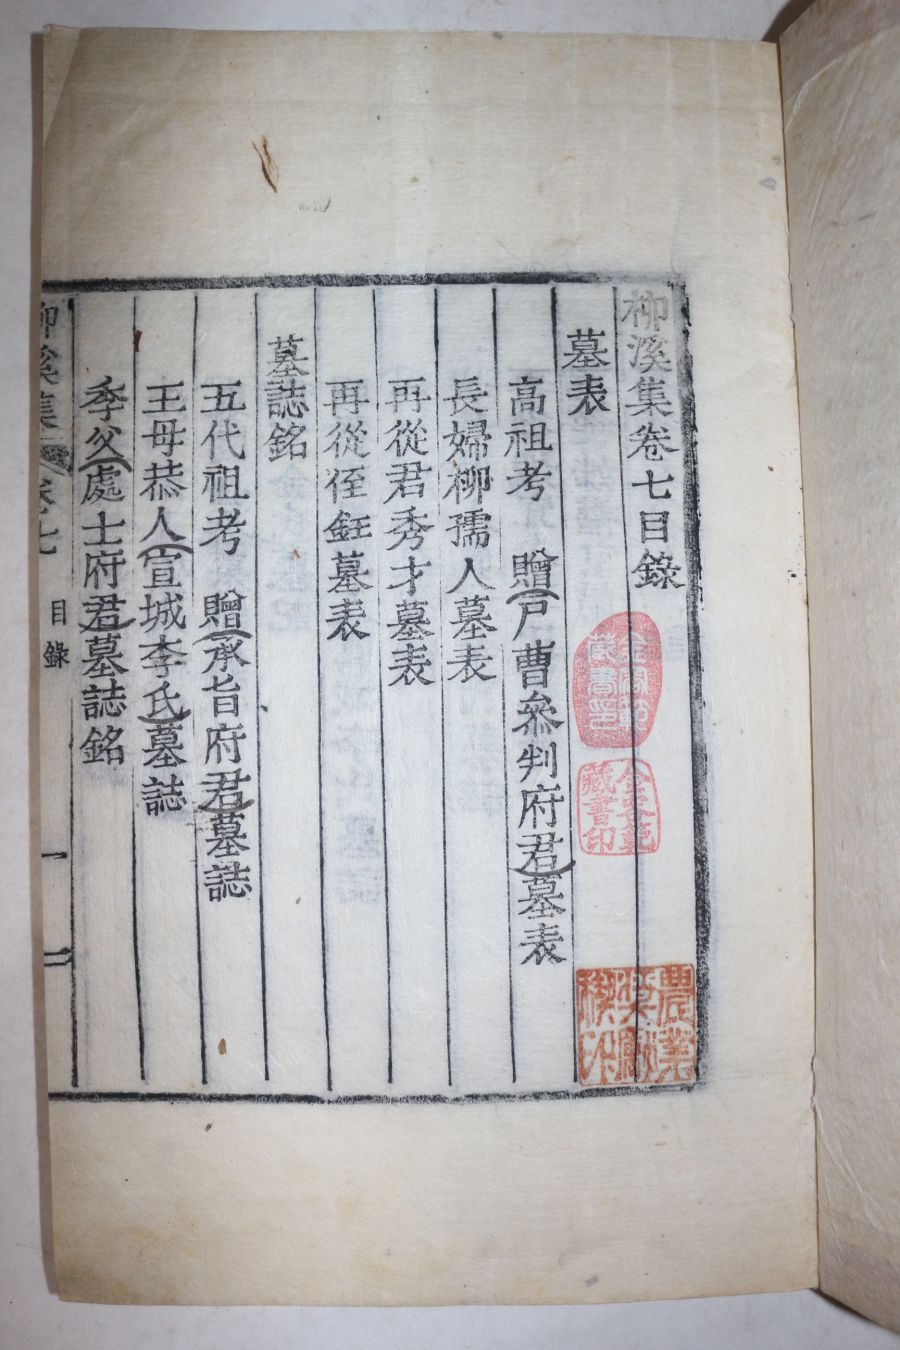 柳溪集卷七目錄
墓表
高祖考 贈戶曹叅判府君墓表
長婦柳孺人墓表
再從君秀才墓表
再從侄鈺墓表
墓誌銘
五代祖考 贈承旨府君墓誌
王母恭人宣城李氏墓誌
季父處士府君墓誌銘
柳溪集 卷七 目錄 一
藏書印
藏書印
農業